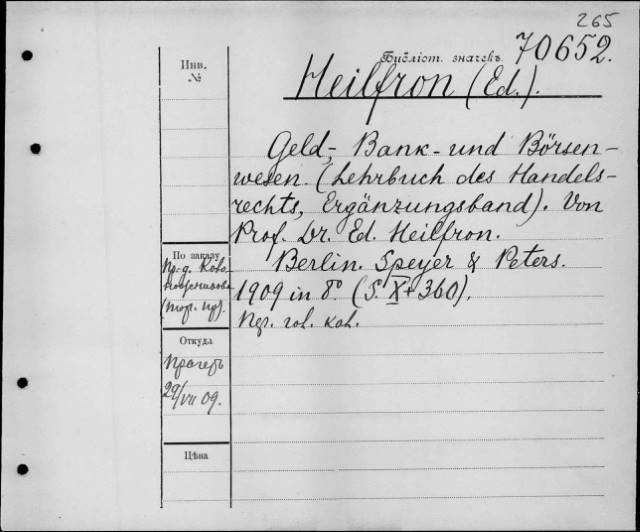 265
Инв. №
Библіот. значекъ 70652.
Heilfron (Ed.).
Geld-, Bank- und Börsen-
wesen. (Lehrbuch des Handels-
rechts, Ergänzungsband). Von
Prof. Dr. Ed. Heilfron.
Berlin. Speyer & Peters.
1909 in 8°. (S. X+360).
По заказу
Откуда
Прагеръ
29/VII 09.
Цѣна